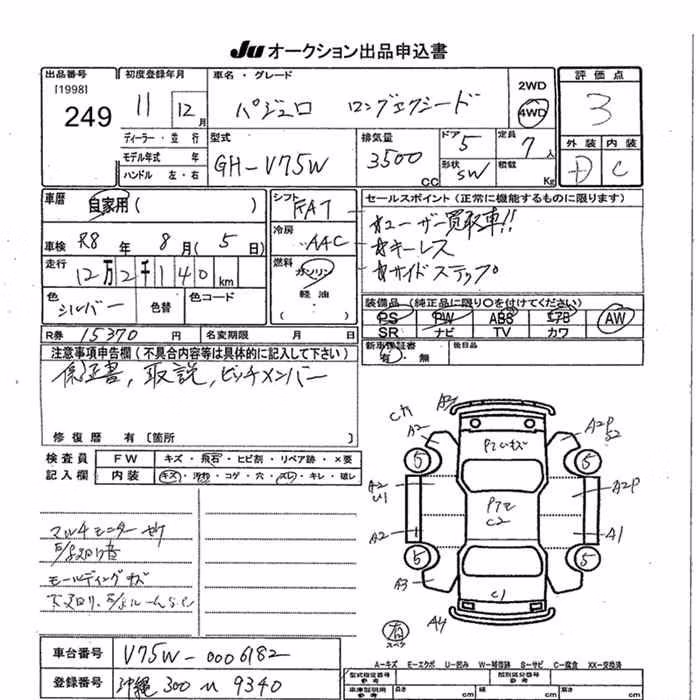 JU オークション出品申込書
出品番号 初度登録年月 車名・グレード 評価点
[1998]
249
11 12月 パジェロ ロングエクシード 2WD 4WD 3
ディーラー・並行 型式 排気量 ドア 定員 外装 内装
モデル年式 年 GH-V75W 3500 5 7人 D C
ハンドル 左・右 CC 形状 SW 積載 Kg
車歴 自家用 ( ) シフト FA7 セールスポイント (正常に機能するものに限ります)
☆ユーザー買取車!!
車検 R8 年 8月 (5日) 冷房 AAC ☆キーレス
走行 12万2千140km 燃料 ガソリン ☆サイドステップ
軽油
色 シルバー 色替 色コード ( )
装備品 (純正品に限り○を付けてください)
PS PW ABS エアB AW
SR ナビ TV カワ
R券 15370円 名変期限 月 日
新車保証書 後日品
有・無
注意事項申告欄 (不具合内容等は具体的に記入して下さい)
保証書, 取説, ヒッチメンバー
修復歴 有 [箇所
検査員 FW キズ・飛石・ヒビ割・リペア跡・×要
記入欄 内装 キズ・汚れ・コゲ・穴・スレ・キレ・破レ
A3
A2 A2P
5 5
A2 A2P
U1
C2
A2 A1
5 5
A3
C1
A4
マルチモニター
モールディングキズ
有
スペタ
車台番号 V75W-0006182
A-キズ E-エクボ U-凹み W-補修跡 S-サビ C-腐食 XX-交換済
型式指定番号 類別区分番号
参考 参考
登録番号 沖縄 300 ル 9340
車庫証明用 長さ 幅 高さ
参考 cm cm cm